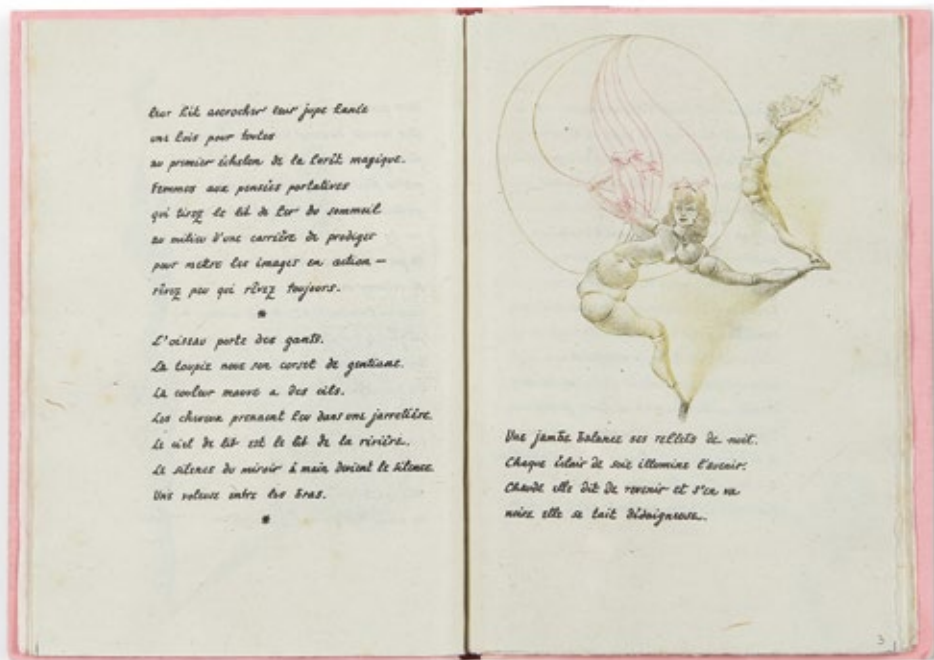 leur fit accrocher leur jupe fanée
une fois pour toutes
au premier échelon de la forêt magique.
Femmes aux pensées portatives
qui tirez le lit de fer du sommeil
au milieu d'une carrière de prodiges
pour mettre les images en action —
rêvez peu qui rêvez toujours.
*
L'oiseau porte des gants.
La toupie noue son corset de gentiane.
La couleur mauve a des cils.
Les cheveux prennent feu dans une jarretière.
Le ciel de lit est le lit de la rivière.
Le silence du miroir à main devient le silence
Une voleuse entre les bras.
*
Une jambe balance ses reflets de nuit.
Chaque éclair de soie illumine l'avenir.
Chaude elle dit de revenir et s'en va
noire elle se tait dédaigneuse.
3